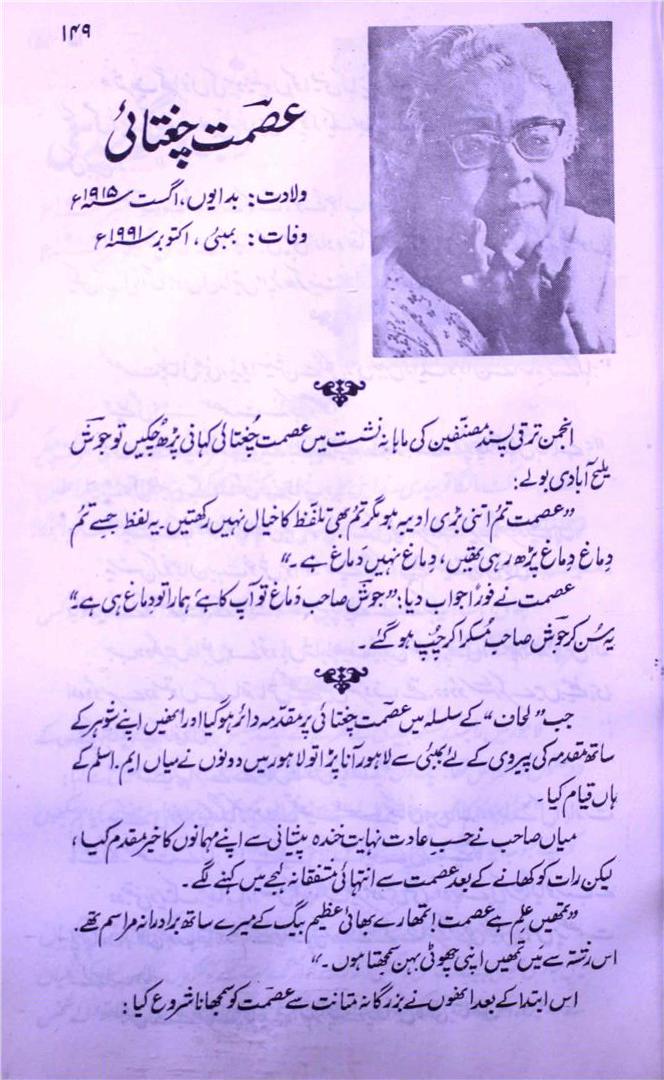 ۱۴۹
عصمت چغتائی
ولادت: بدایوں، اگست ۱۹۱۵ء
وفات: بمبئی، اکتوبر ۱۹۹۱ء
انجمن ترقی پسند مصنّفین کی ماہانہ نشست میں عصمت چُغتائی کہانی پڑھ چکیں تو جوشؔ
ملیح آبادی بولے:
"عصمت تم اتنی بڑی ادیبہ ہو مگر تم بھی تلفّظ کا خیال نہیں رکھتیں۔ یہ لفظ جسے تُم
دِماغ دِماغ پڑھ رہی تھیں، دِماغ نہیں دَماغ ہے۔"
عصمت نے فوراً جواب دیا: "جوشؔ صاحب دَماغ تو آپ کا ہے ہمارا تو دِماغ ہی ہے۔"
یہ سُن کر جوشؔ صاحب مُسکرا کر چپ ہو گئے۔
جب "لحاف" کے سلسلہ میں عصمت چغتائی پر مقدمہ دائر ہو گیا اور انھیں اپنے شوہر کے
ساتھ مقدمہ کی پیروی کے لئے بمبئی سے لاہور آنا پڑا تو لاہور میں دونوں نے میاں ایم۔ اسلم کے
ہاں قیام کیا۔
میاں صاحب نے حسبِ عادت نہایت خندہ پیشانی سے اپنے مہمانوں کا خیر مقدم کیا،
لیکن رات کو کھانے کے بعد عصمت سے انتہائی مشفقانہ لہجے میں کہنے لگے۔
"تمھیں علم ہے عصمت! تمھارے بھائی عظیم بیگ کے میرے ساتھ برادرانہ مراسم تھے۔
اس رشتہ سے میں تمھیں اپنی چھوٹی بہن سمجھتا ہوں۔"
اس ابتدا کے بعد انھوں نے بزرگانہ متانت سے عصمت کو سمجھانا شروع کیا: